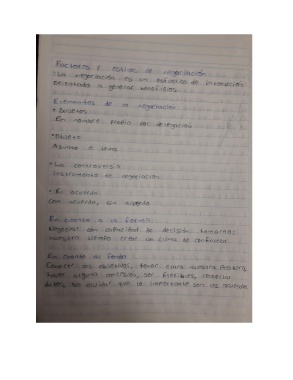 Factores y estilos de negociación
La negociación es un esfuerzo de interacción
orientado a generar beneficios
Elementos de la negociación
* Sujetos
En nombre propio por delegación
* Objeto
Asunto o tema
* La controversia
Instrumento de negociación
* El acuerdo
Con acuerdo, sin acuerdo
En cuanto a la forma:
Negociar con capacidad de decisión
siempre crear un clima de confianza
En cuanto al fondo
Conocer los objetivos, tener clara nuestra
hacer alguna concesión, ser flexibles,
no olvidar que lo importante son los acuerdos